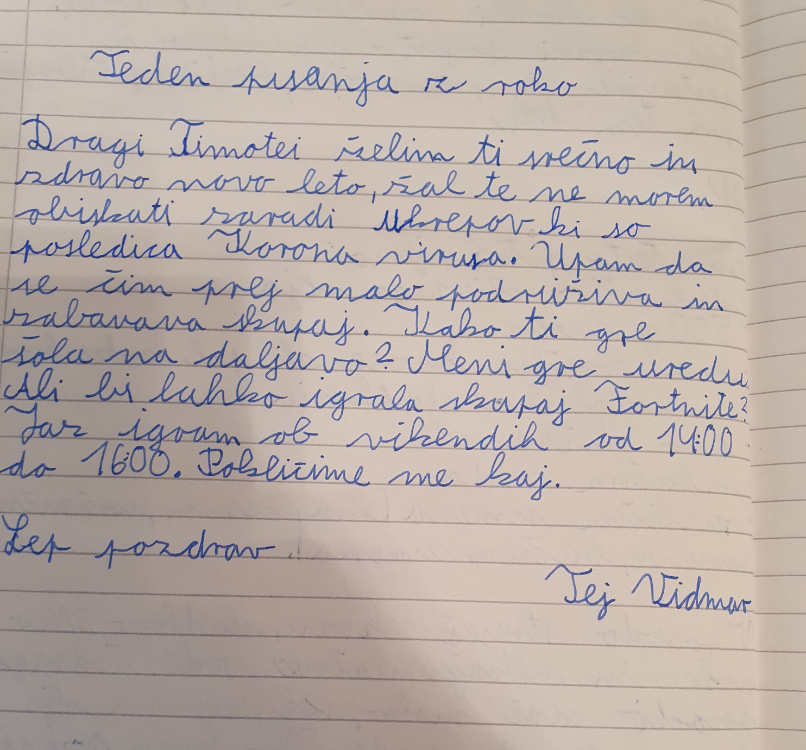 Teden pisanja z roko
Dragi Timotei želim ti srečno in
zdravo novo leto, žal te ne morem
obiskati zaradi ukrepov ki so
posledica Korona virusa. Upam da
se čim prej malo podruživa in
zabavava skupaj. Kako ti gre
šola na daljavo? Meni gre uredu
Ali bi lahko igrala skupaj Fortnite?
Jaz igram ob vikendih od 14:00
do 16:00. Pokličime me kaj.
Lep pozdrav
Tej Vidmar